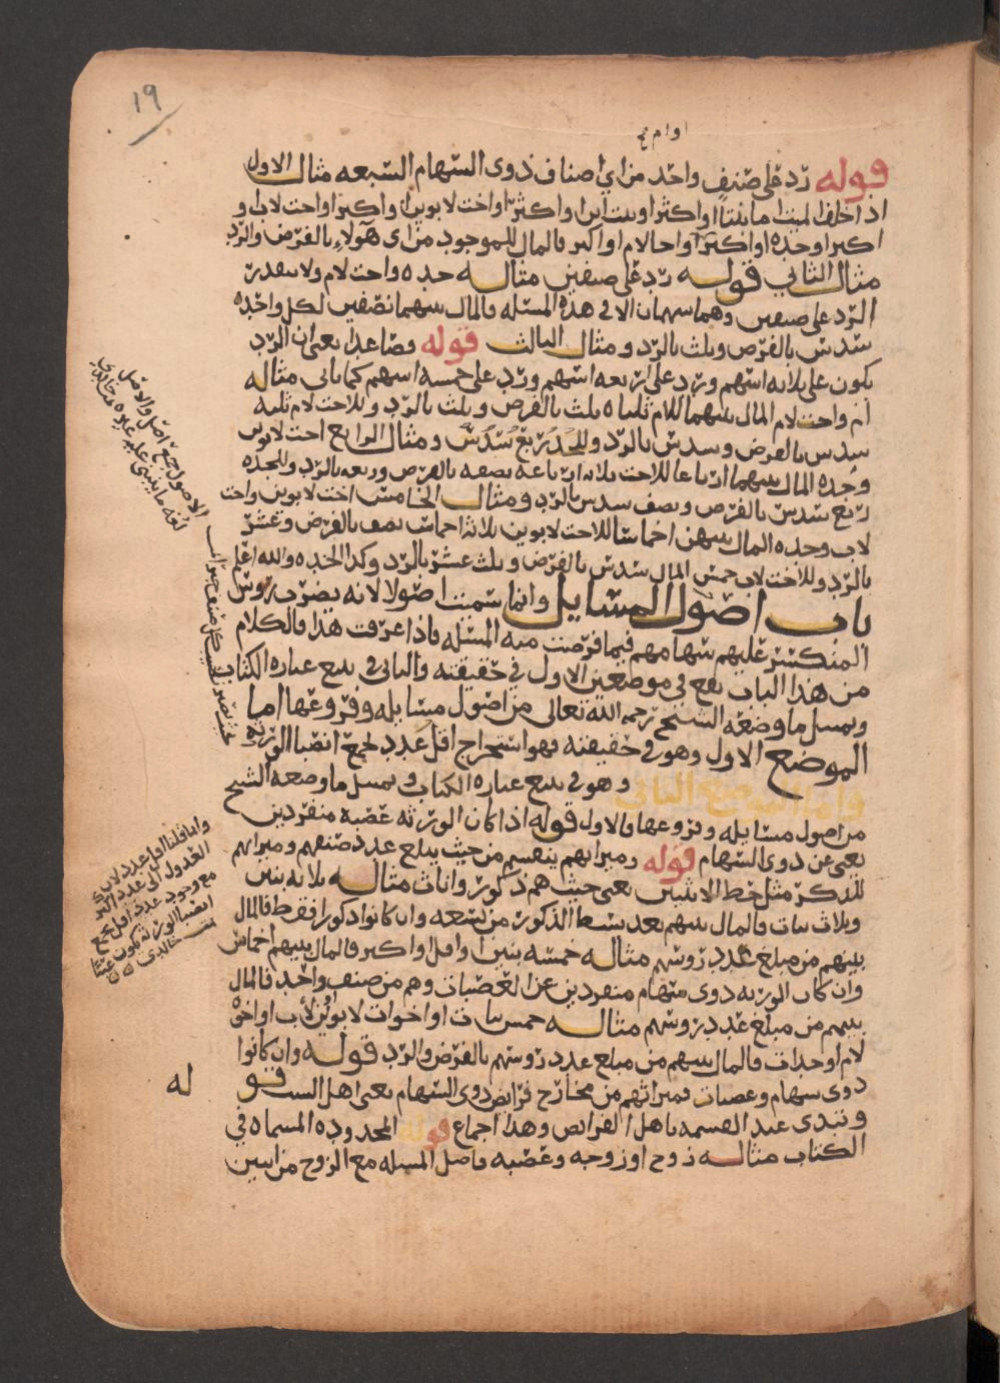 ١٩
او ام ع
قوله رد على صنف واحد من اي اصناف ذوى السهام السبعه مثال الاول
اذا خلف الميت اما بنتا او اكثر او بنت ابن او اكثر او اخت لابوين او اكثر او اخت لاب او
اكثر او جده او اكثر او اخا لام او اكثر فالمال للموجود من اى هولاء بالفرض والرد
مثال الثاني قوله رد على صنفين مثاله جده واخت لام ولا يتقدر
الرد على صنفين وهما سهمان الا فى هذه المسئله فالمال بينهما نصفين لكل واحده
سدس بالفرض وثلث بالرد ومثال الثالث قوله فصاعدا يعنى ان الرد
يكون على ثلاثه اسهم ورد على اربعه اسهم ورد على خمسه اسهم كما ياتى مثاله
ام واخت لام المال بينهما للام ثلثاه ثلث بالفرض وثلث بالرد وللاخت لام ثلثه
سدس بالفرض وسدس بالرد ومثال الرابع اخت لابوين
وجده المال بينهما ارباعا للاخت ثلاثه ارباعه نصفه بالفرض وربعه بالرد وللجده
ربع سدس بالفرض ونصف سدس بالرد ومثال الخامس اخت لابوين واخت
لاب وجده المال بينهن اخماسا للاخت لابوين ثلاثه اخماس نصف بالفرض وعشر
بالرد وللاخت لاب خمس المال سدس بالفرض وثلث عشر بالرد وكذا الجده والله اعلم
باب اصول المسايل وانما سميت اصولا لانه يضرب روس
المنكسر عليهم سهامهم فيما فرضت منه المسئله فاذا عرفت هذا فالكلام
من هذا الباب يقع فى موضعين الاول في حقيقته والثانى فى تتبع عباره الكتاب
وتمثيل ما وضعه الشيخ رحمه الله تعالى من اصول مسايله وفروعها اما
الموضع الاول وهو فى حقيقته فهو استخراج اقل عدد يجمع انصبا الورثه
واما الموضع الثانى وهو فى تتبع عباره الكتاب وتمثيل ما وضعه الشيخ
من اصول مسايله وفروعها فالاول قوله اذا كان الورثه عصبه منفردين
يعنى عن ذوى السهام قوله وميراثهم ينقسم من حيث يبلغ عدد صنفهم وميراثهم
للذكر مثل حظ الانثيين يعنى حيث هم ذكور واناث مثاله ثلاثه بنين
وثلاث بنات فالمال بينهم بعد بسط الذكور من تسعه وان كانوا ذكورا فقط فالمال
بينهم من مبلغ عدد روسهم مثاله خمسه بنين او اقل او اكثر فالمال بينهم اخماس
وان كان الورثه ذوى سهام منفردين عن العصبات وهم من صنف واحد فالمال
بينهم من مبلغ عدد روسهم مثاله خمس بنات او اخوات لابوين او لاب او اخوه
لام او جدات فالمال بينهم من مبلغ عدد روسهم بالفرض والرد قوله وان كانوا
ذوى سهام وعصبات فميراثهم من مخارج فرايض ذوى السهام يعنى اهل الست قو
له
ونبتدى عند القسمه باهل الفرايض وهذا اجماع قوله المحدوده المسماه فى
الكتاب مثاله زوج او زوجه وعصبه فاصل المسئله مع الزوج من اثنين
الاصول جمع اصل والاصل
لغه ما يبتنى عليه غيره
وانما قلنا اقل عدد لان
العدول الى عدد اكثر
مع وجود عدد اقل يجمع
انصبا الورثه يكون عبثا
خالدى